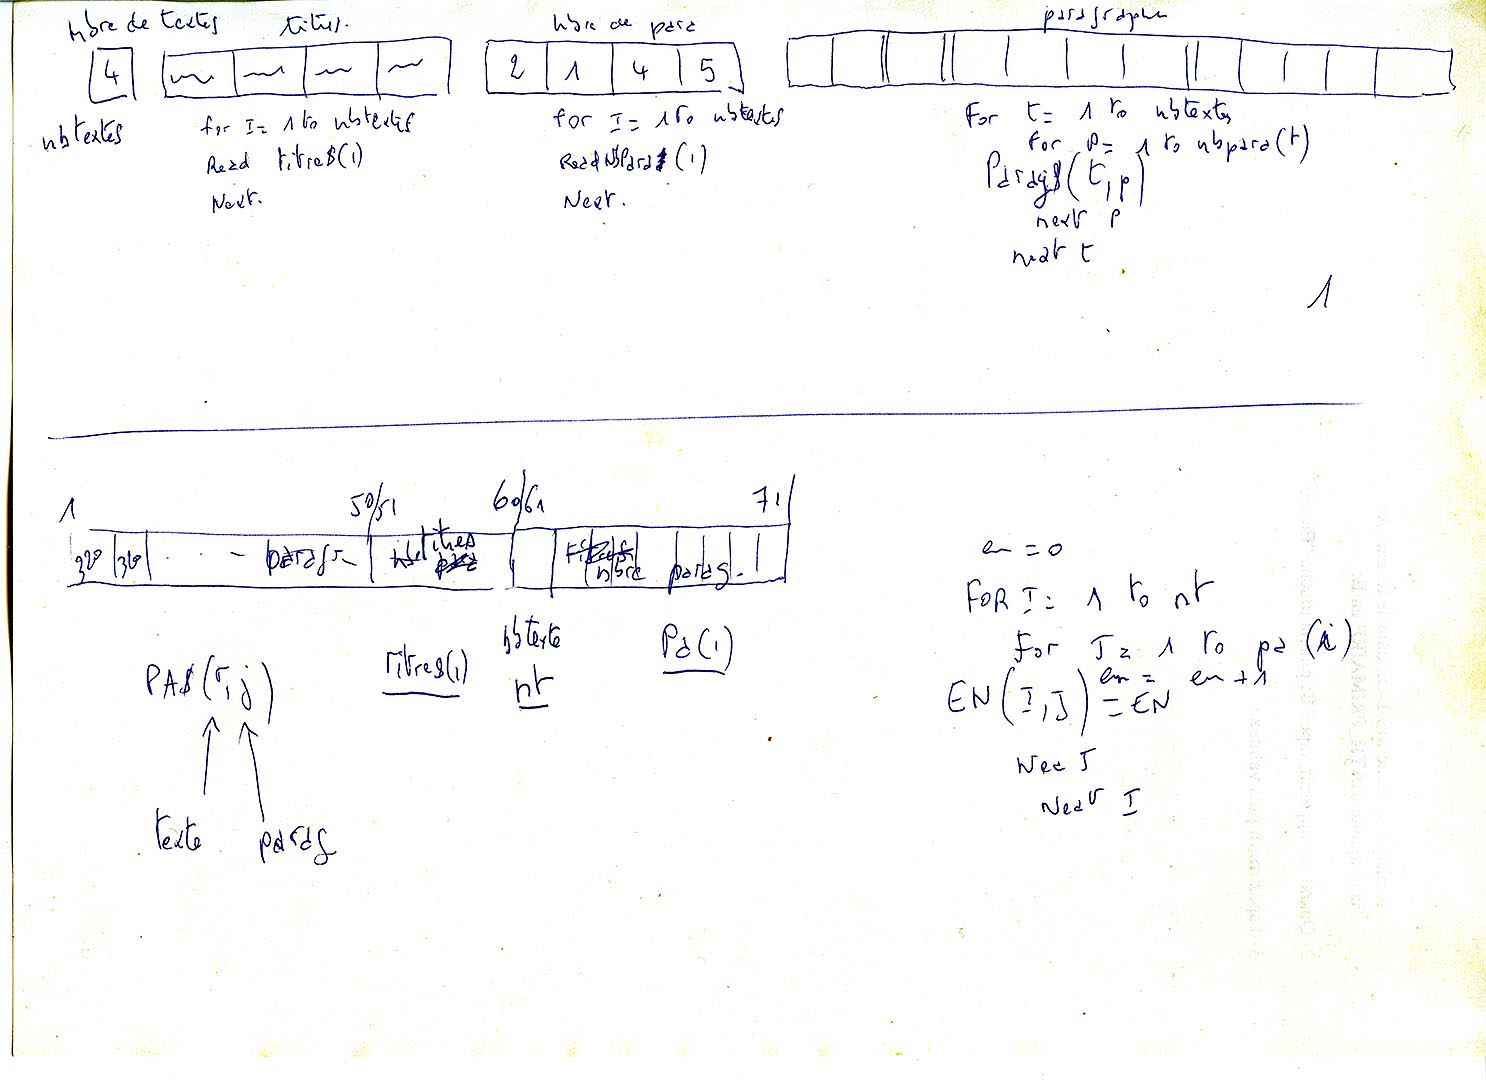 nbre de textes
titres.
nbre de para
paragraphe
4
2 1 4 5
nbtextes
for I = 1 to nbtextes
Read titre$(1)
Next.
for I = 1 to nbtextes
Read NbPara(1)
Next.
For t = 1 to nbtextes
for p = 1 to nbpara(t)
Parag$(t,p)
next p
next t
1
1
50/51
60/61
71
320 320 . . - paragr
titres
nbre parag.
PA$(T,j)
titre$(1)
nbtexte
nt
Pa(1)
texte
parag
en = 0
FOR I = 1 to nt
for J = 1 to pa (i)
en = en + 1
EN(I,J) = EN
Nex J
Next I